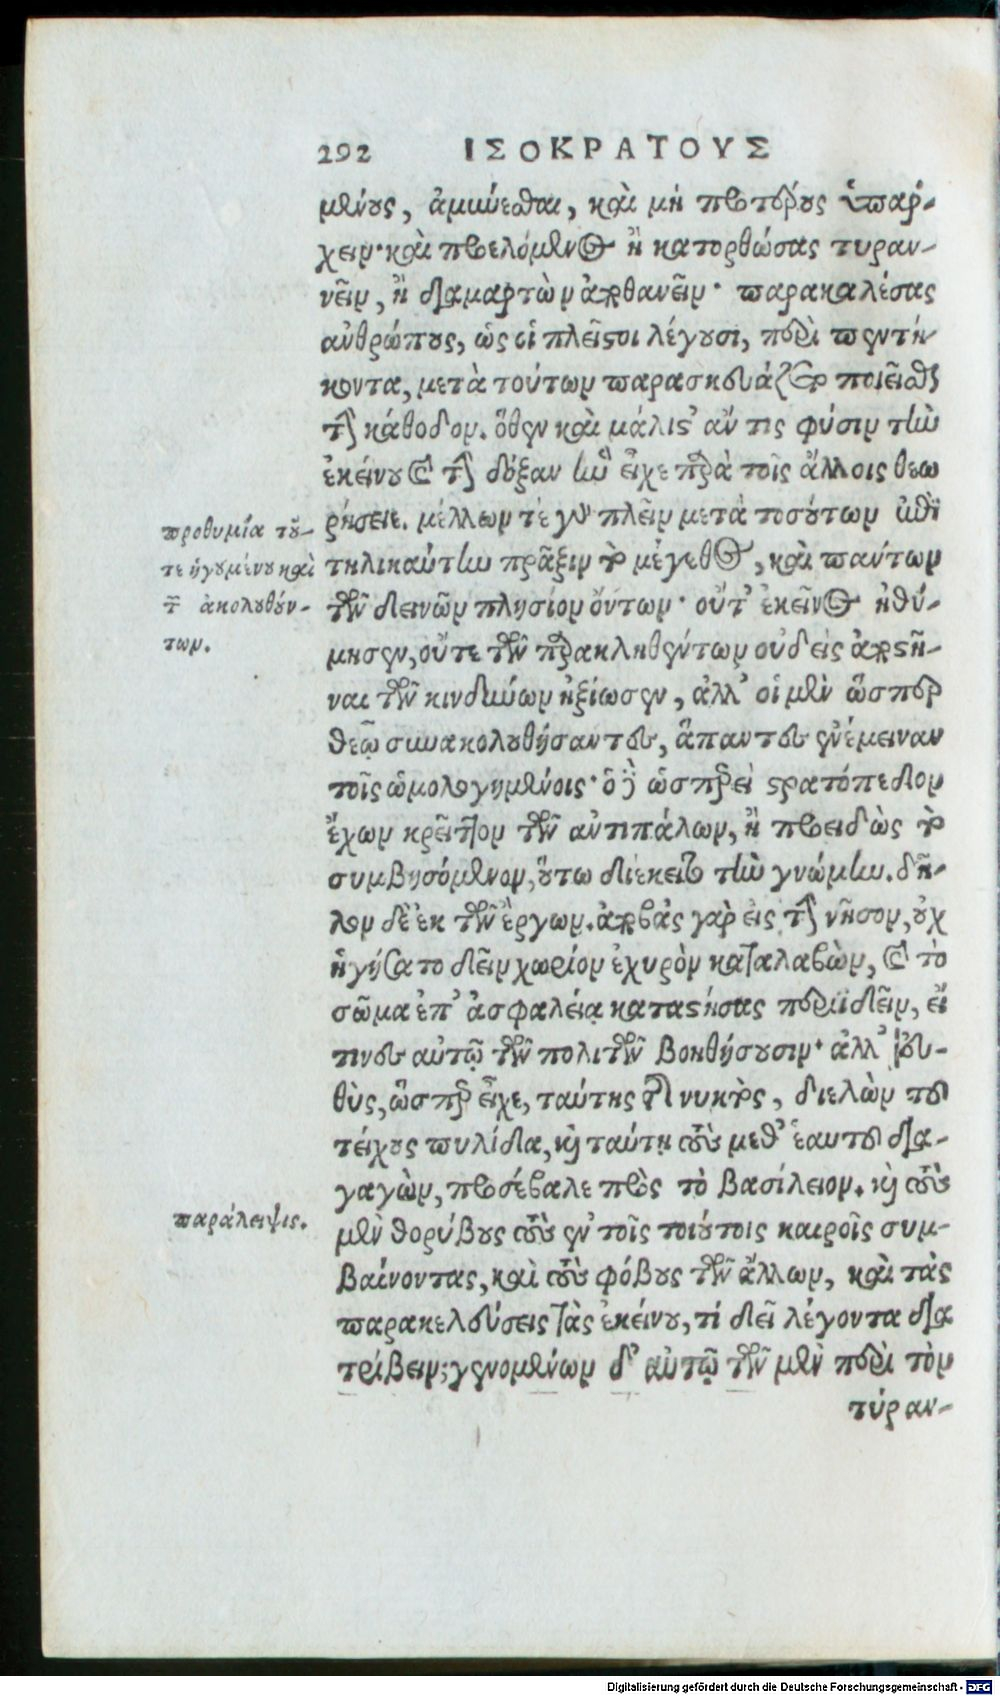 292 ΙΣΟΚΡΑΤΟΥΣ
μένους, ἀμύνεσθαι, καὶ μὴ προτέρους ὑπάρ-
χειν· καὶ προελόμενος ἢ κατορθώσας τυραν-
νεῖν, ἢ διαμαρτὼν ἀποθανεῖν· παρακαλέσας
ἀνθρώπους, ὡς οἱ πλεῖστοι λέγουσι, περὶ πεντή-
κοντα, μετὰ τούτων παρασκευάζετο ποιεῖσθαι
τὴν κάθοδον. ὅθεν καὶ μάλιστ' ἄν τις φύσιν τὴν
ἐκείνου καὶ τὴν δόξαν ἣν εἶχε παρὰ τοῖς ἄλλοις θεω
ρήσειε. μέλλων τε γὰρ πλεῖν μετὰ τοσούτων ἐπὶ
τηλικαύτην πρᾶξιν τὸ μέγεθος, καὶ πάντων
τῶν δεινῶν πλησίον ὄντων· οὔτ' ἐκεῖνος ἠθύ-
μησεν, οὔτε τῶν παρακληθέντων οὐδεὶς ἀποστῆ-
ναι τῶν κινδύνων ἠξίωσεν, ἀλλ' οἱ μὲν ὥσπερ
θεῷ συνακολουθήσαντες, ἅπαντες ἐνέμειναν
τοῖς ὡμολογημένοις· ὁ δὲ ὡσπερεὶ στρατόπεδον
ἔχων κρεῖττον τῶν ἀντιπάλων, ἢ προειδὼς τὸ
συμβησόμενον, οὕτω διέκειτο τὴν γνώμην. δῆ-
λον δὲ ἐκ τῶν ἔργων. ἀποβὰς γὰρ εἰς τὴν νῆσον, οὐχ
ἡγήσατο δεῖν χωρίον ἐχυρὸν καταλαβὼν, καὶ τὸ
σῶμα ἐπ' ἀσφαλείᾳ καταστήσας περιϊδεῖν, εἴ
τινες αὐτῷ τῶν πολιτῶν βοηθήσουσιν· ἀλλ' εὐ-
θὺς, ὥσπερ εἶχε, ταύτης τῆς νυκτὸς, διελὼν τοῦ
τείχους πυλίδια, καὶ ταύτῃ τοὺς μεθ' ἑαυτοῦ δια-
γαγὼν, προσέβαλε πρὸς τὸ βασίλειον. καὶ τοὺς
μὲν θορύβους τοὺς ἐν τοῖς τοιούτοις καιροῖς συμ-
βαίνοντας, καὶ τοὺς φόβους τῶν ἄλλων, καὶ τὰς
παρακελεύσεις τὰς ἐκείνου, τί δεῖ λέγοντα δια
τρίβειν; γενομένων δ' αὐτῷ τῶν μὲν περὶ τὸν
τύραν-
προθυμία τοῦ-
τε ἡγουμένου καὶ
τῶν ἀκολουθούν-
των.
παράλειψις.
Digitalisierung gefördert durch die Deutsche Forschungsgemeinschaft - DFG